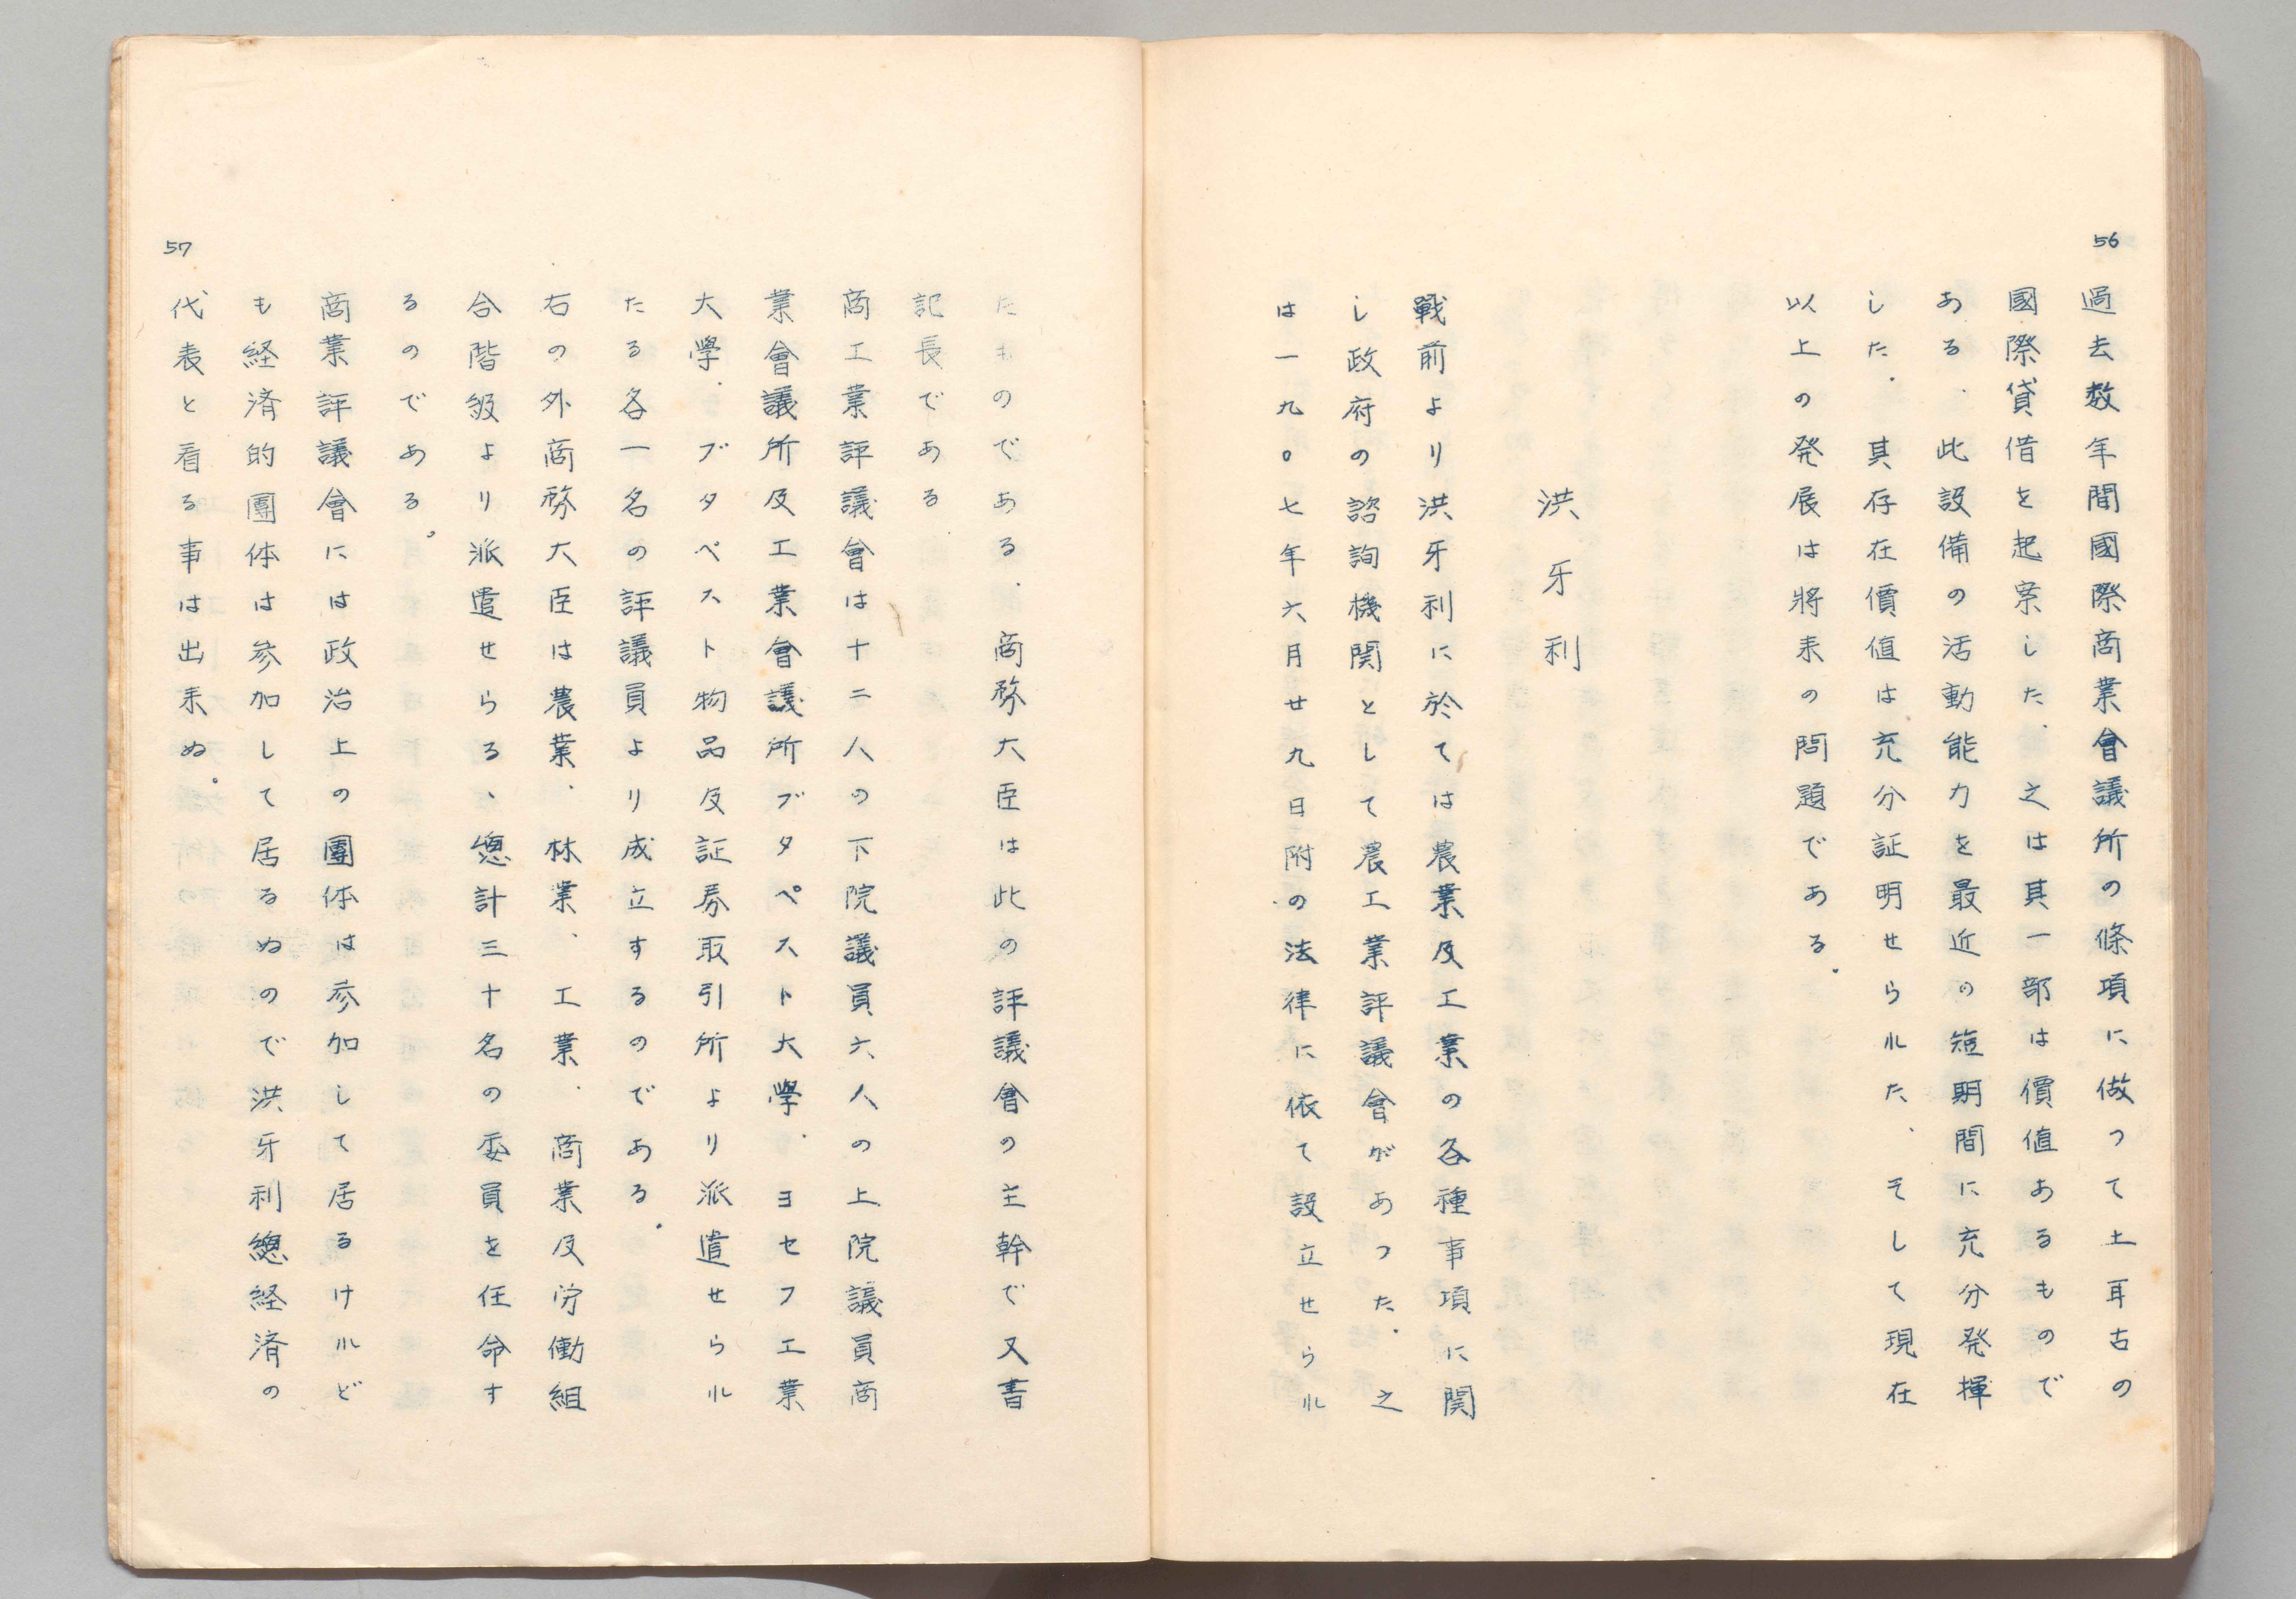 56
過去数年間國際商業會議所の條項に做つて土耳古の
國際貸借を起案した、之は其一部は價値あるもので
ある、此設備の活動能力を最近の短期間に充分発揮
した.其存在價値は充分証明せられた、そして現在
以上の発展は將来の問題である。
洪牙利
戰前より洪牙利に於ては農業及工業の各種事項に関
し政府の諮詢機関として農工業評議會があつた.之
は一九〇七年六月廿九日附の法律に依て設立せられ
たものである.商務大臣は此の評議會の主幹で又書
記長である.
商工業評議會は十二人の下院議員六人の上院議員商
業會議所及工業會議所ブタペスト大學.ヨセフ工業
大學.ブタペスト物品及証券取引所より派遣せられ
たる各一名の評議員より成立するのである。
右の外商務大臣は農業、林業、工業.商業及労働組
合階級より派遣せらる、總計三十名の委員を任命す
るのである。
商業評議會には政治上の團体は参加して居るけれど
も経済的團体は参加して居るぬので洪牙利總経済の
57
代表と看る事は出来ぬ。